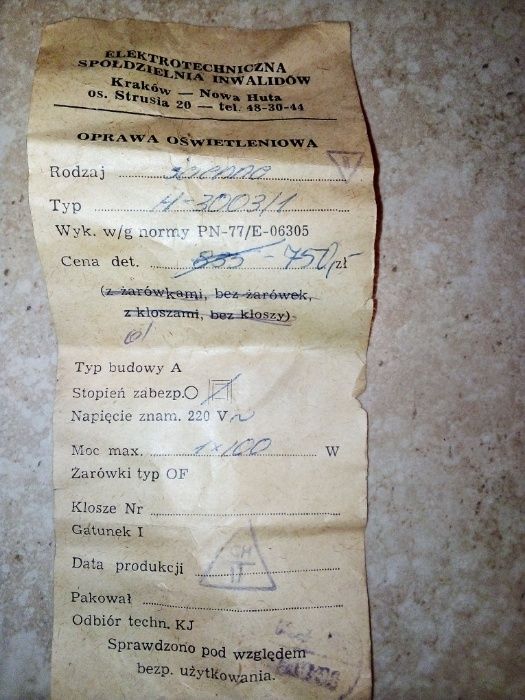 ELEKTROTECHNICZNA
SPÓŁDZIELNIA INWALIDÓW
Kraków — Nowa Huta
os. Strusia 20 — tel. 48-30-44
OPRAWA OŚWIETLENIOWA
Rodzaj
Typ H-3003/1
Wyk. w/g normy PN-77/E-06305
Cena det. 835 - 750, zł
(z żarówkami, bez żarówek,
z kloszami, bez kloszy)
Typ budowy A
Stopień zabezp.
Napięcie znam. 220 V~
Moc max. 1×100 W
Żarówki typ OF
Klosze Nr
Gatunek I
Data produkcji
Pakował
Odbiór techn. KJ
Sprawdzono pod względem
bezp. użytkowania.